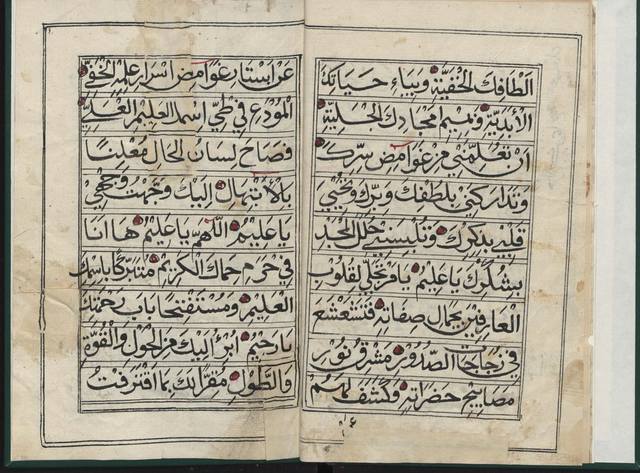 الطافك الخفية وبياء حياتك
الأبدية وبميم مجادك الجلية
ان تعلمني من غوامض سرك
وتداركني بلطفك وبرك وتحيي
قلبي بذكرك وتلبسني حلل المجد
بشكرك يا عليم يا من تجلى لقلوب
العارفين بجمال صفاته فتشعشع
في زجاجات الصدور مشرق نور
مصابيح حضراته وكشف لهم
عن استار غوامض اسرار علمه الخفي
المودع في طي اسمه العليم العلي
فصاح لسان الحال معلنا
بالابتهال اليك وجهت وجهي
يا عليم اللهم يا عليم ها انا
في حرم حماك الكريم متبركا باسمك
العليم ومستفتحا باب رحمتك
يا رحيم ابرؤ اليك من الحول والقوة
والطول مقرا بك بما اقترفت